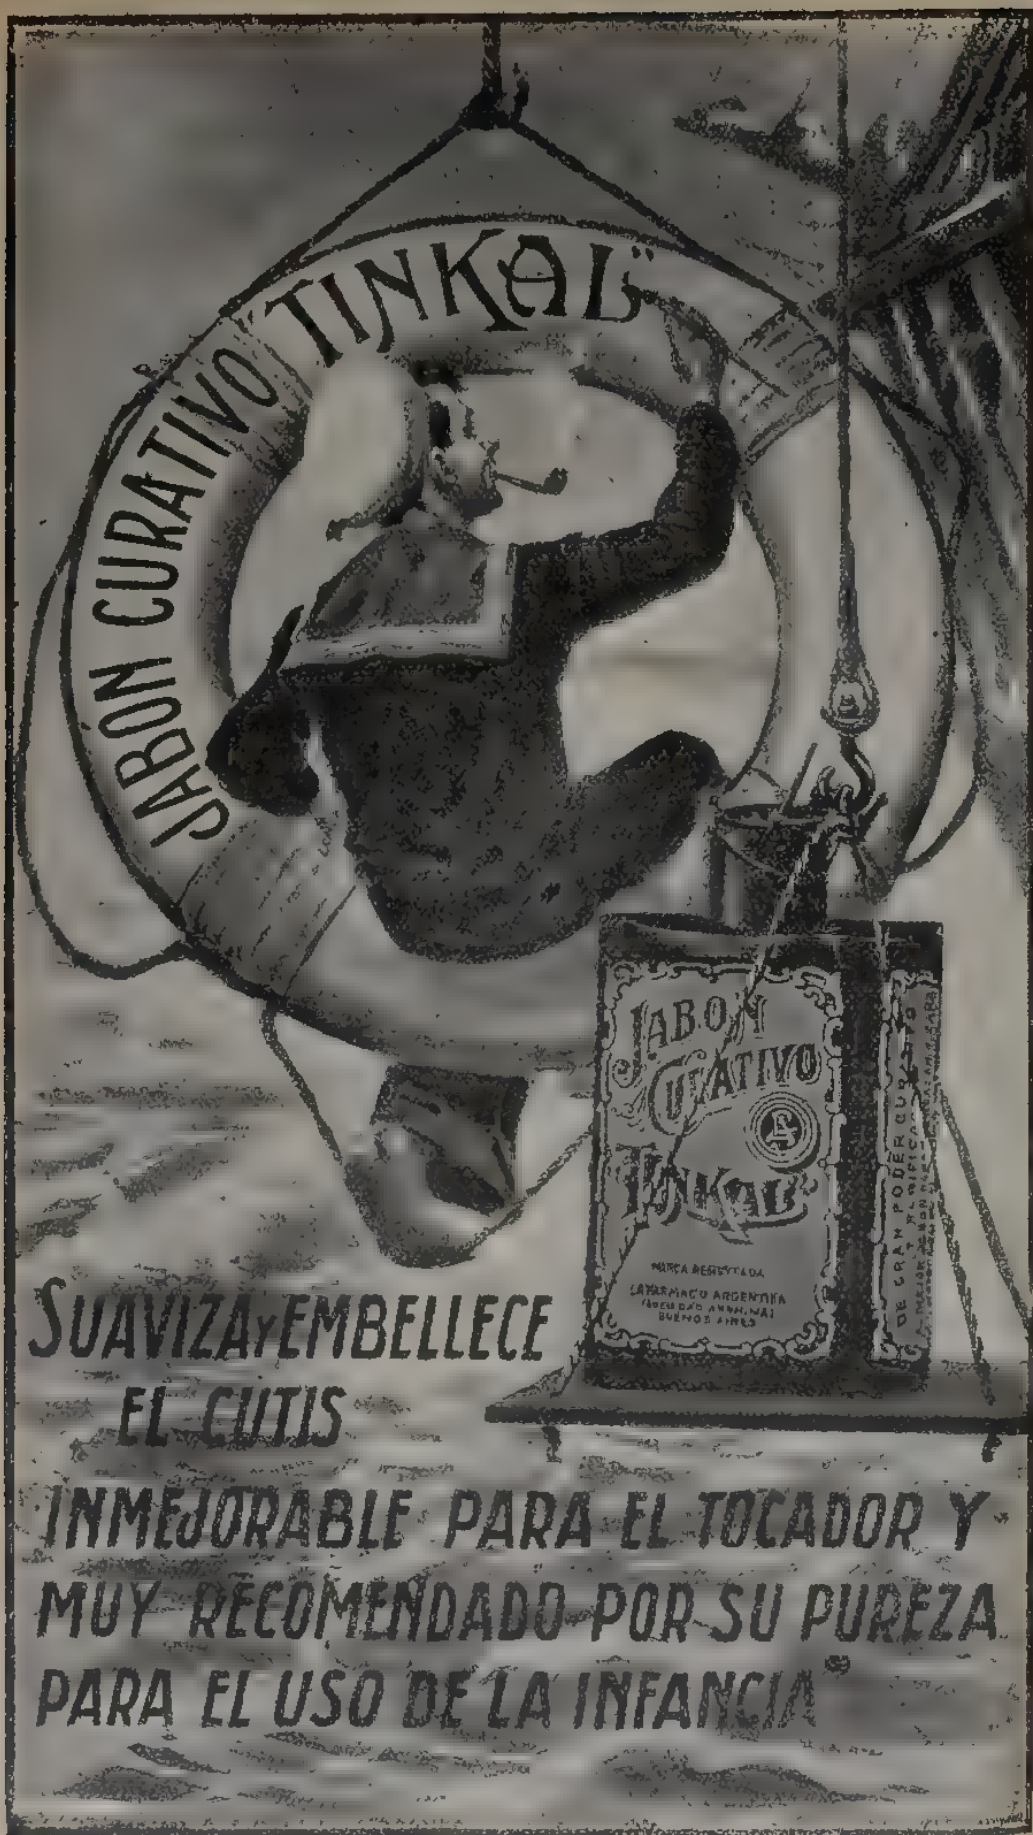 JABÓN CURATIVO "TINKAL"
JABON
CURATIVO
TINKAL
MARCA REGISTRADA
LA FARMACO ARGENTINA
(SOCIEDAD ANONIMA)
BUENOS AIRES
DE GRAN PODER CURATIVO
SUAVIZA Y EMBELLECE
EL CUTIS
INMEJORABLE PARA EL TOCADOR Y
MUY RECOMENDADO POR SU PUREZA
PARA EL USO DE LA INFANCIA